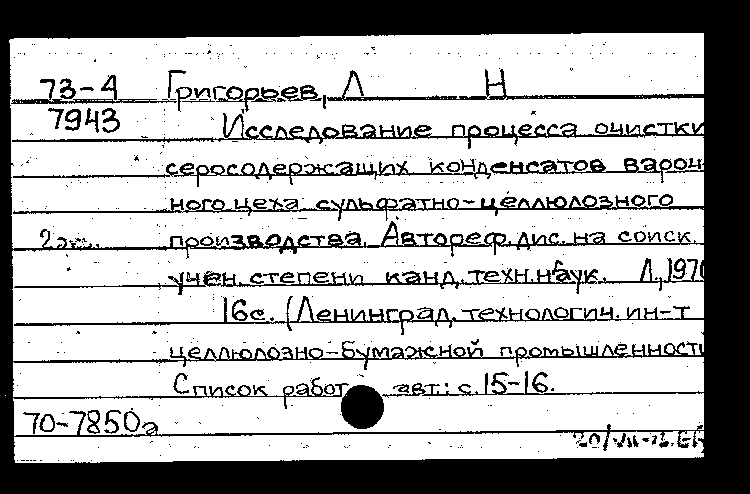 73-4 Григорьев, Л Н
7943 Исследование процесса очистки
серосодержащих конденсатов вароч-
ного цеха сульфатно-целлюлозного
2эк. производства. Автореф. дис. на соиск.
учен. степени канд. техн. наук. Л., 1970
16с. (Ленинград. технологич. ин-т
целлюлозно-бумажной промышленности
Список работ авт.: с. 15-16.
70-7850а